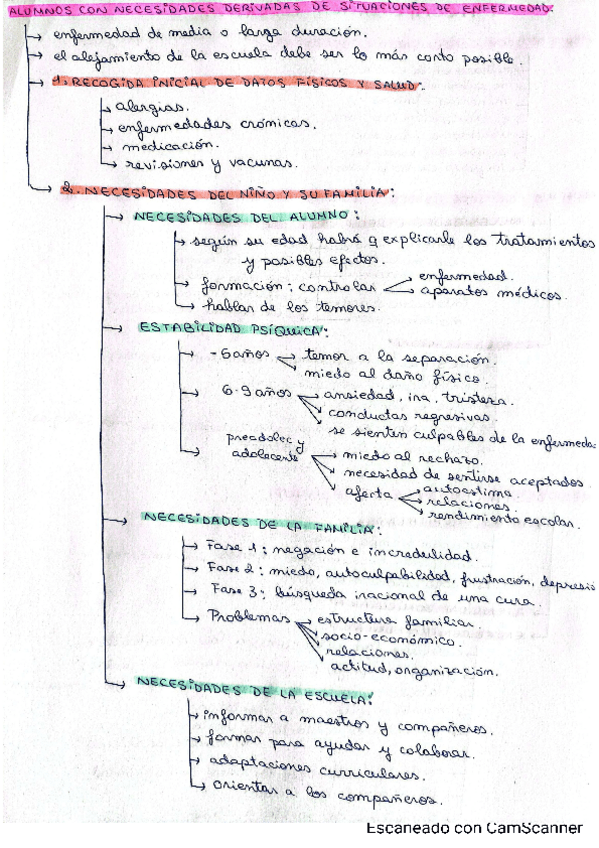 ALUMNOS CON NECESIDADES DERIVADAS DE SITUACIONES DE ENFERMEDAD:
enfermedad de media o larga duración.
el alejamiento de la escuela debe ser lo más corto posible.
1. RECOGIDA INICIAL DE DATOS FÍSICOS Y SALUD:
alergias.
enfermedades crónicas.
medicación.
revisiones y vacunas.
2. NECESIDADES DEL NIÑO Y SU FAMILIA:
NECESIDADES DEL ALUMNO:
según su edad habrá q explicarle los tratamientos
y posibles efectos.
formación: controlar
enfermedad.
aparatos médicos.
hablar de los temores.
ESTABILIDAD PSÍQUICA:
-6 años
temor a la separación.
miedo al daño físico.
6-9 años
ansiedad, ira, tristeza.
conductas regresivas.
se sienten culpables de la enfermeda
preadolec y
adolecente
miedo al rechazo.
necesidad de sentirse aceptados
afecta
autoestima
relaciones.
rendimiento escolar.
NECESIDADES DE LA FAMILIA:
Fase 1: negación e incredulidad.
Fase 2: miedo, autoculpabilidad, frustración, depresió
Fase 3: búsqueda iracional de una cura.
Problemas
estructura familiar.
socio-económico.
relaciones.
actitud, organización.
NECESIDADES DE LA ESCUELA:
informar a maestros y compañeros.
formar para ayudar y colaborar.
adaptaciones curriculares.
orientar a los compañeros.
Escaneado con CamScanner